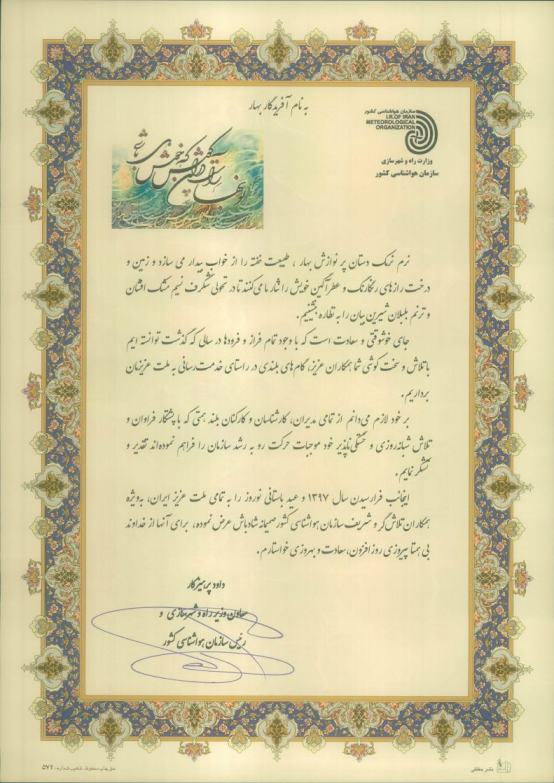 به نام آفریدگار بهار
سازمان هواشناسی کشور
I.R.OF IRAN
METEOROLOGICAL
ORGANIZATION
وزارت راه و شهرسازی
سازمان هواشناسی کشور
نرم نرمک دستان پر نوازش بهار ، طبیعت خفته را از خواب بیدار می سازد و زمین و
درخت رازهای رنگارنگ و عطرآگین خویش را نثار ما می کنند تا در تحولی شگرف نسیم مشک افشان
و ترنم بلبلان شیرین بیان را به نظاره بنشینیم.
جای خوشوقتی و سعادت است که با وجود تمام فراز و فرودها در سالی که گذشت توانسته ایم
با تلاش و سخت کوشی شما همکاران عزیز، گام های بلندی در راستای خدمت رسانی به ملت عزیزمان
برداریم.
بر خود لازم می دانم از تمامی مدیران، کارشناسان و کارکنان بلند همتی که با پشتکار فراوان و
تلاش شبانه روزی و خستگی ناپذیر خود موجبات حرکت رو به رشد سازمان را فراهم نموده اند تقدیر و
تشکر نمایم.
اینجانب فرا رسیدن سال ۱۳۹۷ و عید باستانی نوروز را به تمامی ملت عزیز ایران، به ویژه
همکاران تلاش گر و شریف سازمان هواشناسی کشور صمیمانه شادباش عرض نموده، برای آنها از خداوند
بی همتا پیروزی روزافزون، سعادت و بهروزی خواستارم.
داود پرهیزکار
معاون وزیر راه و شهرسازی و
رئیس سازمان هواشناسی کشور